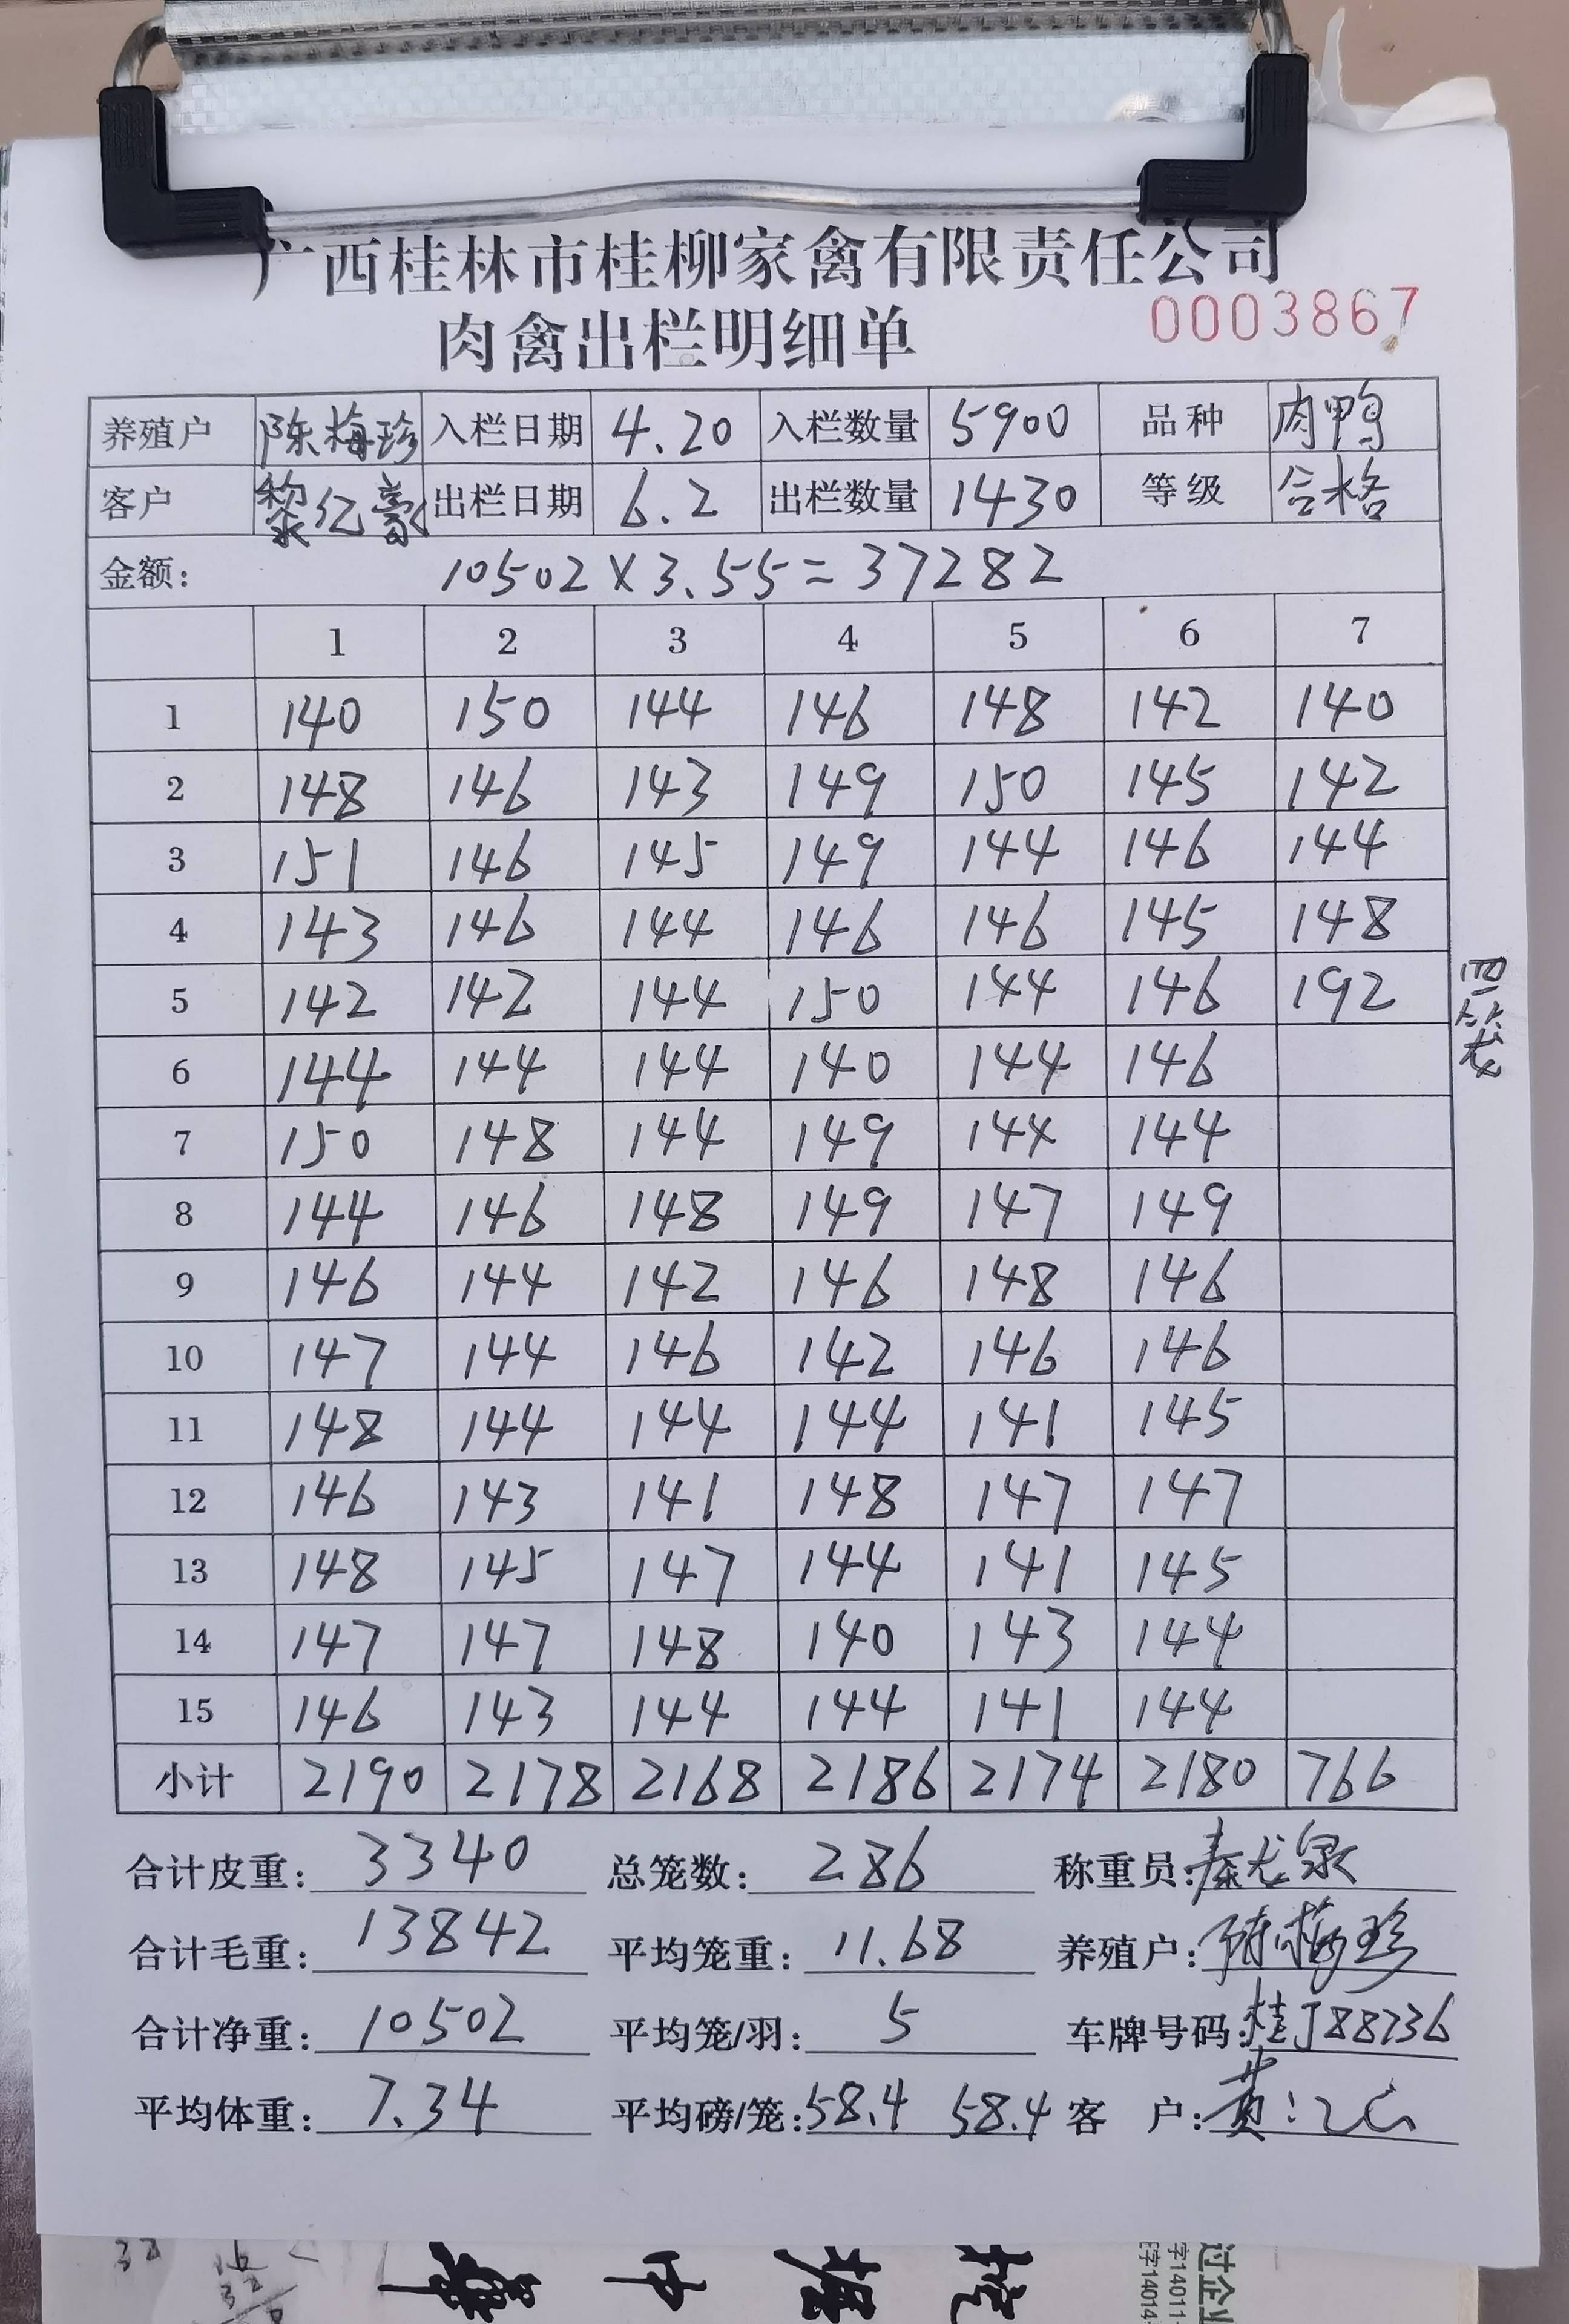 广西桂林市桂柳家禽有限责任公司
肉禽出栏明细单
0003867
养殖户 陈梅珍 入栏日期 4.20 入栏数量 5900 品种 肉鸭
客户 黎亿豪 出栏日期 6.2 出栏数量 1430 等级 合格
金额: 10502×3.55=37282
1 2 3 4 5 6 7
1 140 150 144 146 148 142 140
2 148 146 143 149 150 145 142
3 151 146 145 149 144 146 144
4 143 146 144 146 146 145 148
5 142 142 144 150 144 146 192 四笼
6 144 144 144 140 144 146
7 150 148 144 149 144 144
8 144 146 148 149 147 149
9 146 144 142 146 148 146
10 147 144 146 142 146 146
11 148 144 144 144 141 145
12 146 143 141 148 147 147
13 148 145 147 144 141 145
14 147 147 148 140 143 144
15 146 143 144 144 141 144
小计 2190 2178 2168 2186 2174 2180 766
合计皮重: 3340 总笼数: 286 称重员: 秦龙泉
合计毛重: 13842 平均笼重: 11.68 养殖户: 陈梅珍
合计净重: 10502 平均笼/羽: 5 车牌号码: 桂J88236
平均体重: 7.34 平均磅/笼: 58.4 58.4 客 户: 黄
过企业
字14011
字14014